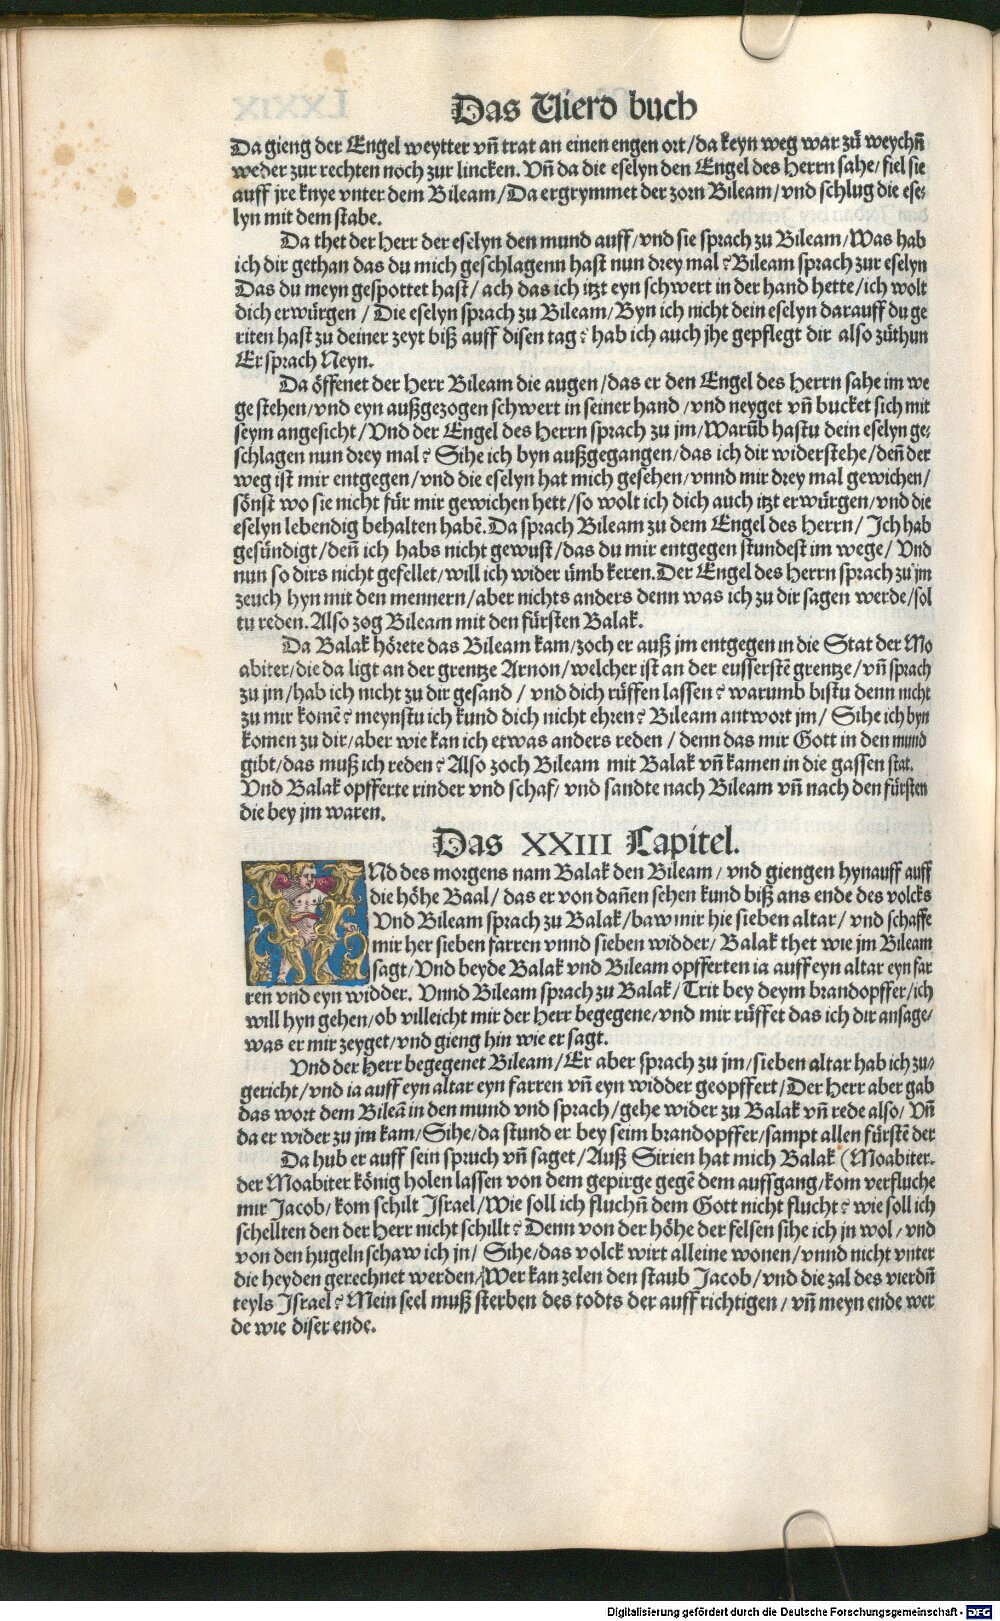 Das Vierd buch
Da gieng der Engel weytter vñ trat an einen engen ort/da keyn weg war zů weychñ
weder zur rechten noch zur lincken. Vñ da die eselyn den Engel des Herrn sahe/fiel sie
auff jre knye vnter dem Bileam/Da ergrymmet der zorn Bileam/vnd schlug die ese⸗
lyn mit dem stabe.
Da thet der Herr der eselyn den mund auff/vnd sie sprach zu Bileam/Was hab
ich dir gethan das du mich geschlagenn hast nun drey mal? Bileam sprach zur eselyn
Das du meyn gespottet hast/ach das ich itzt eyn schwert in der hand hette/ich wolt
dich erwürgen/Die eselyn sprach zu Bileam/Byn ich nicht dein eselyn darauff du ge
riten hast zu deiner zeyt biß auff disen tag? hab ich auch jhe gepflegt dir also zůthun
Er sprach Neyn.
Da öffenet der Herr Bileam die augen/das er den Engel des Herrn sahe im we
ge stehen/vnd eyn außgezogen schwert in seiner hand/vnd neyget vñ bucket sich mit
seym angesicht/Vnd der Engel des Herrn sprach zu jm/Warũb hastu dein eselyn ge⸗
schlagen nun drey mal? Sihe ich byn außgegangen/das ich dir widerstehe/deñ der
weg ist mir entgegen/vnd die eselyn hat mich gesehen/vnnd mir drey mal gewichen/
sönst wo sie nicht für mir gewichen hett/so wolt ich dich auch itzt erwürgen/vnd die
eselyn lebendig behalten habẽ. Da sprach Bileam zu dem Engel des Herrn/Ich hab
gesündigt/deñ ich habs nicht gewust/das du mir entgegen stundest im wege/Vnd
nun so dirs nicht gefellet/will ich wider ümb keren. Der Engel des Herrn sprach zu jm
zeuch hyn mit den mennern/aber nichts anders denn was ich zu dir sagen werde/sol
tu reden. Also zog Bileam mit den fürsten Balak.
Da Balak hörete das Bileam kam/zoch er auß jm entgegen in die Stat der Mo
abiter/die da ligt an der grentze Arnon/welcher ist an der eusserstẽ grentze/vñ sprach
zu jm/hab ich nicht zu dir gesand/vnd dich rüffen lassen? warumb bistu denn nicht
zu mir komẽ? meynstu ich kund dich nicht ehren? Bileam antwort jm/Sihe ich byn
komen zu dir/aber wie kan ich etwas anders reden/denn das mir Gott in den mund
gibt/das muß ich reden? Also zoch Bileam mit Balak vñ kamen in die gassen stat.
Vnd Balak opfferte rinder vnd schaf/vnd sandte nach Bileam vñ nach den fürsten
die bey jm waren.
Das XXIII Capitel.
VNd des morgens nam Balak den Bileam/vnd giengen hynauff auff
die höhe Baal/das er von dañen sehen kund biß ans ende des volcks
Vnd Bileam sprach zu Balak/baw mir hie sieben altar/vnd schaffe
mir her sieben farren vnnd sieben widder/Balak thet wie jm Bileam
sagt/Vnd beyde Balak vnd Bileam opfferten ia auff eyn altar eyn far
ren vnd eyn widder. Vnnd Bileam sprach zu Balak/Trit bey deym brandopffer/ich
will hyn gehen/ob villeicht mir der Herr begegene/vnd mir rüffet das ich dir ansage/
was er mir zeyget/vnd gieng hin wie er sagt.
Vnd der Herr begegenet Bileam/Er aber sprach zu jm/sieben altar hab ich zu⸗
gericht/vnd ia auff eyn altar eyn farren vñ eyn widder geopffert/Der Herr aber gab
das wort dem Bileã in den mund vnd sprach/gehe wider zu Balak vñ rede also/Vñ
da er wider zu jm kam/Sihe/da stund er bey seim brandopffer/sampt allen fürstẽ der
Da hub er auff sein spruch vñ saget/Auß Sirien hat mich Balak (Moabiter.
der Moabiter könig holen lassen von dem gepirge gegẽ dem auffgang/kom verfluche
mir Jacob/kom schilt Israel/Wie soll ich fluchñ dem Gott nicht flucht? wie soll ich
schellten den der Herr nicht schillt? Denn von der höhe der felsen sihe ich jn wol/vnd
von den hugeln schaw ich jn/Sihe/das volck wirt alleine wonen/vnnd nicht vnter
die heyden gerechnet werden/Wer kan zelen den staub Jacob/vnd die zal des vierdñ
teyls Israel? Mein seel muß sterben des todts der auffrichtigen/vñ meyn ende wer
de wie diser ende.
Digitalisierung gefördert durch die Deutsche Forschungsgemeinschaft - DFG